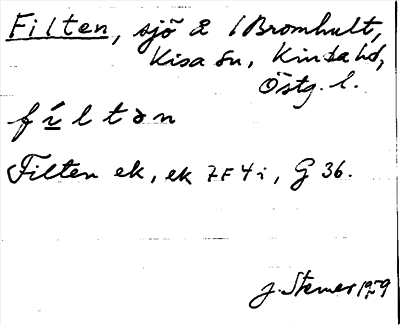 Filten, sjö 2 /Bromhult,
Kisa sn, Kinda hd,
Östg. l.
fíltən
Filten ek, ek 7F4i, G 36.
J. Stemer 1959